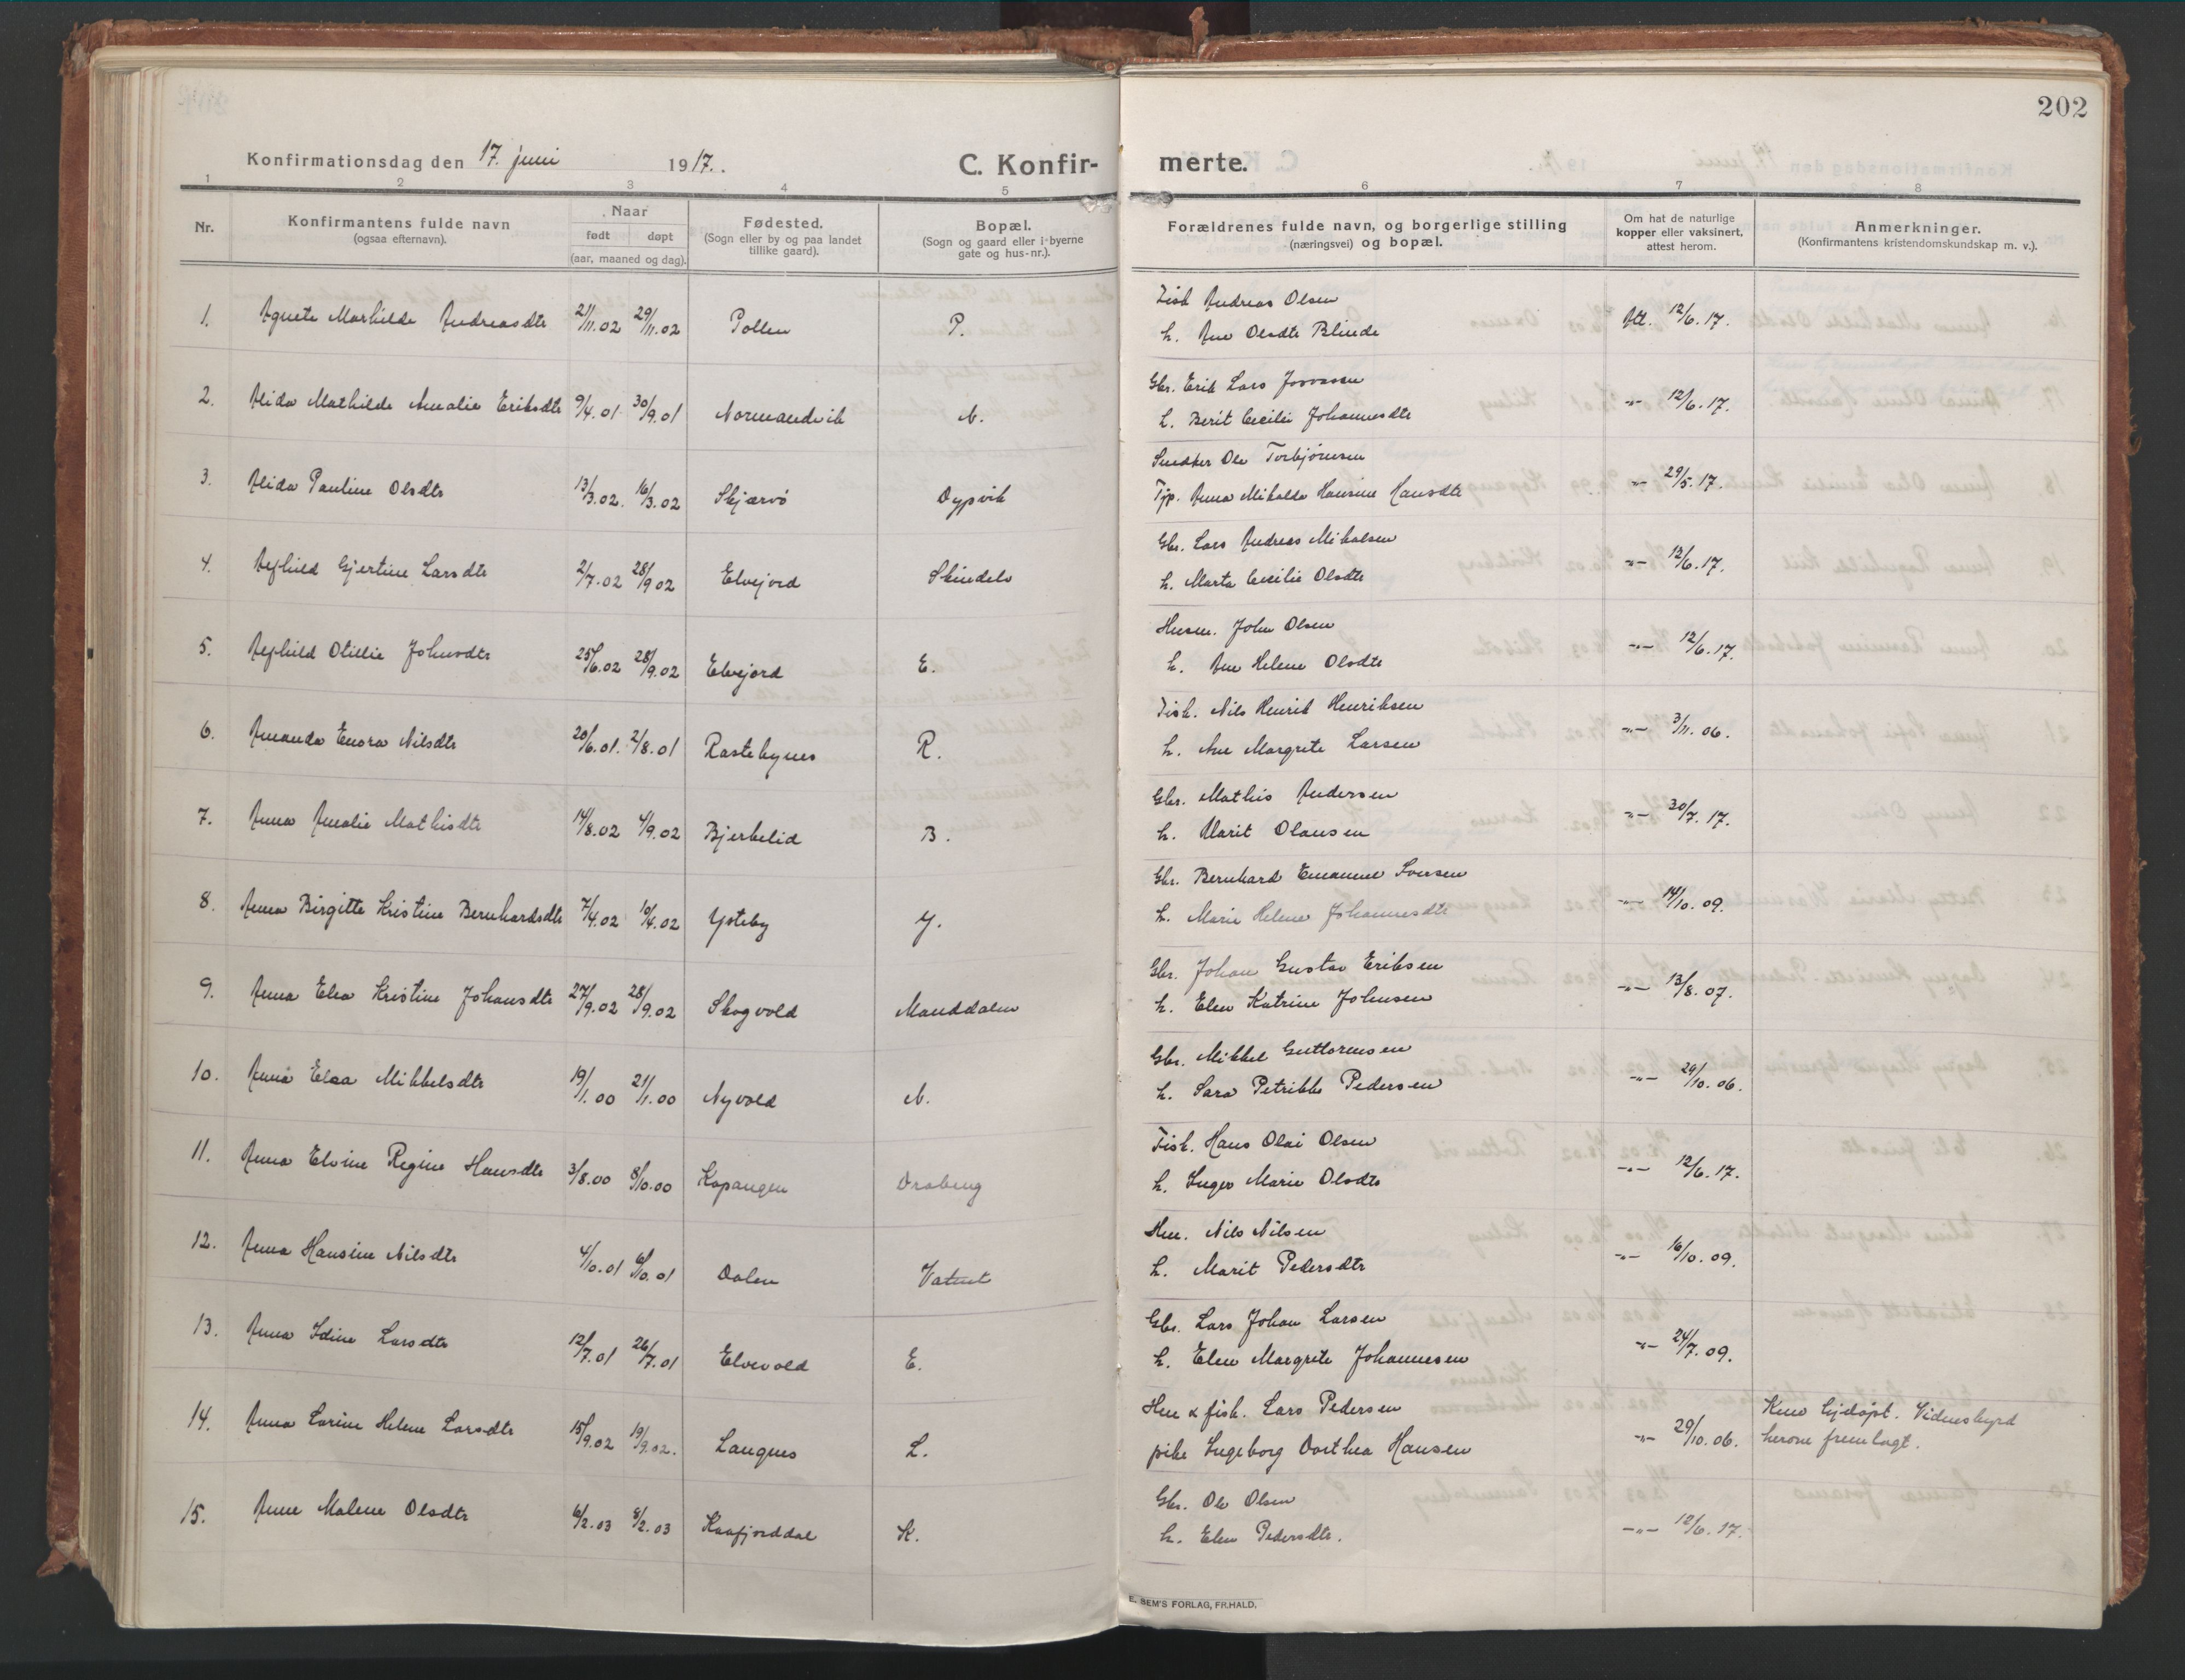 202
Konfirmationsdag den 17. juni 1917.
C. Konfirmerte.
1 2 3 4 5 6 7 8
Nr.
Konfirmantens fulde navn
(ogsaa efternavn).
Naar
født døpt
(aar, maaned og dag).
Fødested.
(Sogn eller by og paa landet
tillike gaard).
Bopæl.
(Sogn og gaard eller i byerne
gate og hus-nr.).
Forældrenes fulde navn, og borgerlige stilling
(næringsvei) og bopæl.
Om hat de naturlige
kopper eller vaksinert,
attest herom.
Anmerkninger.
(Konfirmantens kristendomskundskap m. v.).
1. Agnete Marhilde Andreasdtr 21/11.02 29/11.02 Pollen P. Fisk Andreas Olsen Att. 12/6.17.
h. Ane Olsdtr Blinde
2. Alida Mathilde Amalie Eriksdtr 9/4.01 30/9.01 Normandvik N. Gbr. Erik Lars Josvasen -"- 12/6.17.
h. Berit Cecilie Johannesdtr
3. Alida Pauline Olsdtr 13/3.02. 16/3.02 Skjærvö Dypvik Snedker Ole Torbjörnsen -"- 29/5.17.
Tjp. Anna Mikalda Hansine Hansdtr
4. Asfhild Gjertine Larsdtr 2/7.02 28/9.02 Elvejord Skindelv Gbr. Lars Andreas Mikalsen -"- 12/6.17.
h. Marta Cecilie Olsdtr
5. Asfhild Otilie Johnsdtr 25/6.02 28/9.02 Elvejord E. Husm. John Olsen -"- 12/6.17.
h. Ane Helene Olsdtr
6. Amanda Enora Nilsdtr 20/6.01. 2/8.01 Rastebynes R. Fisk. Nils Henrik Henriksen -"- 3/11.06.
h. Ane Margrete Larsen
7. Anna Amalie Mathisdtr 14/8.02 4/9.02 Bjerkelid B. Gbr. Mathis Andersen -"- 30/7.17.
h. Marit Olausen
8. Anna Birgitte Kristine Bernhardsdtr 7/4.02 10/4.02 Ysteby Y. Gbr. Bernhard Emanuel Iversen -"- 14/10.09.
h. Marie Helene Johannesdtr
9. Anna Elea Kristine Johansdtr 27/9.02 28/9.02 Skogvold Manddalen Gbr. Johan Gustav Eriksen -"- 13/8.07.
h. Elen Katrine Johnsen
10. Anna Elea Mikkelsdtr 19/1.00 21/1.00 Nyvold N. Gbr. Mikkel Guttormsen -"- 29/10.06.
h. Sara Petrikke Pedersen
11. Anna Elvine Regine Hansdtr 3/8.00 8/10.00 Kopangen Draberg Fisk. Hans Olai Olsen -"- 12/6.17.
h. Inger Marie Olsdtr
12. Anna Hansine Nilsdtr 4/10.01 6/10.01 Dalen Vatnet Hm. Nils Nilsen -"- 16/10.09.
h. Marit Pedersdtr
13. Anna Idine Larsdtr 12/7.01 26/7.01 Elvevold E. Gbr. Lars Johan Larsen -"- 24/7.09.
h. Elen Margrete Johannesen
14. Anna Larine Helene Larsdtr 15/9.02 19/9.02. Langnes L. Hm & fisk. Lars Pedersen -"- 29/10.06. Kun hjdöpt. Vidnesbyrd
pike Ingeborg Dorthea Hansen herom fremlagt.
15. Anne Malene Olsdtr 6/2.03 8/2.03 Kaafjorddal K. Gbr. Ole Olsen -"- 12/6.17.
h. Elen Pedersdtr.
E. SEM'S FORLAG, FR.HALD.